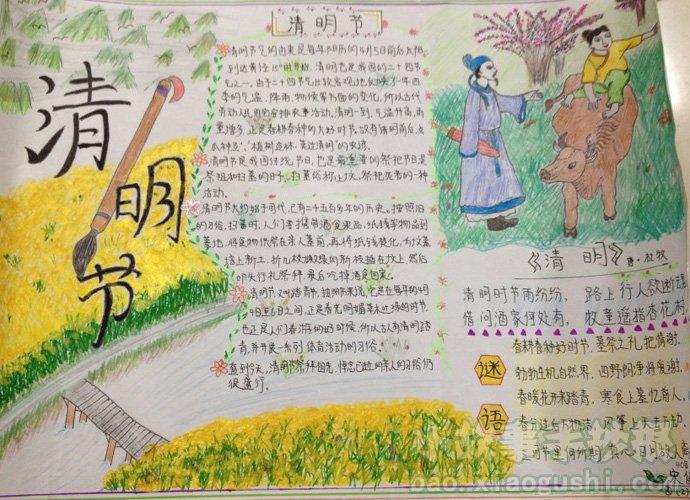 清明节
清明节
清明节气的由来是每年阳历的4月5日前后太阳
到达黄径15°时开始。清明也是我国的二十四节
气之一。由于二十四节气比较客观地反映了一年四
季的气温、降雨、物候等方面的变化,所以古代
劳动人民用它安排农事活动。清明一到,气温升高,雨
量增多,正是春耕春种的大好时节。故有清明前后,点
瓜种豆、植树造林,莫过清明的农谚。
清明节是我国传统节日,也是最重要的祭祀节日是
祭祖和扫墓的日子。扫墓俗称上坟,祭祀死者的一种
活动。
清明节大约始于周代,已有二千五百多年的历史。按照旧
的习俗,扫墓时,人们要携带酒食果品、纸钱等物品到
墓地,将食物供祭在亲人墓前,再将纸钱焚化,为坟墓
培上新土,折几枝嫩绿的新枝插在坟上,然后
叩头行礼祭拜,最后吃掉酒食回家。
清明节,又叫踏青节,按阳历来说,它是在每年的4月
4日至6日之间,正是春光明媚草木吐绿的时节,
也正是人们春游的好时候,所以古人有清明踏
青,并开展一系列体育活动的习俗。
直到今天,清明节祭拜祖先,悼念已逝的亲人的习俗仍
很盛行。
《清明》 唐·杜牧
清明时节雨纷纷, 路上行人欲断魂
借问酒家何处有, 牧童遥指杏花村
谜语
春耕春种好时节,墓祭之礼把情谢。
勃勃生机自然界,四野
春暖花开来踏青,寒食上墓忆前人。